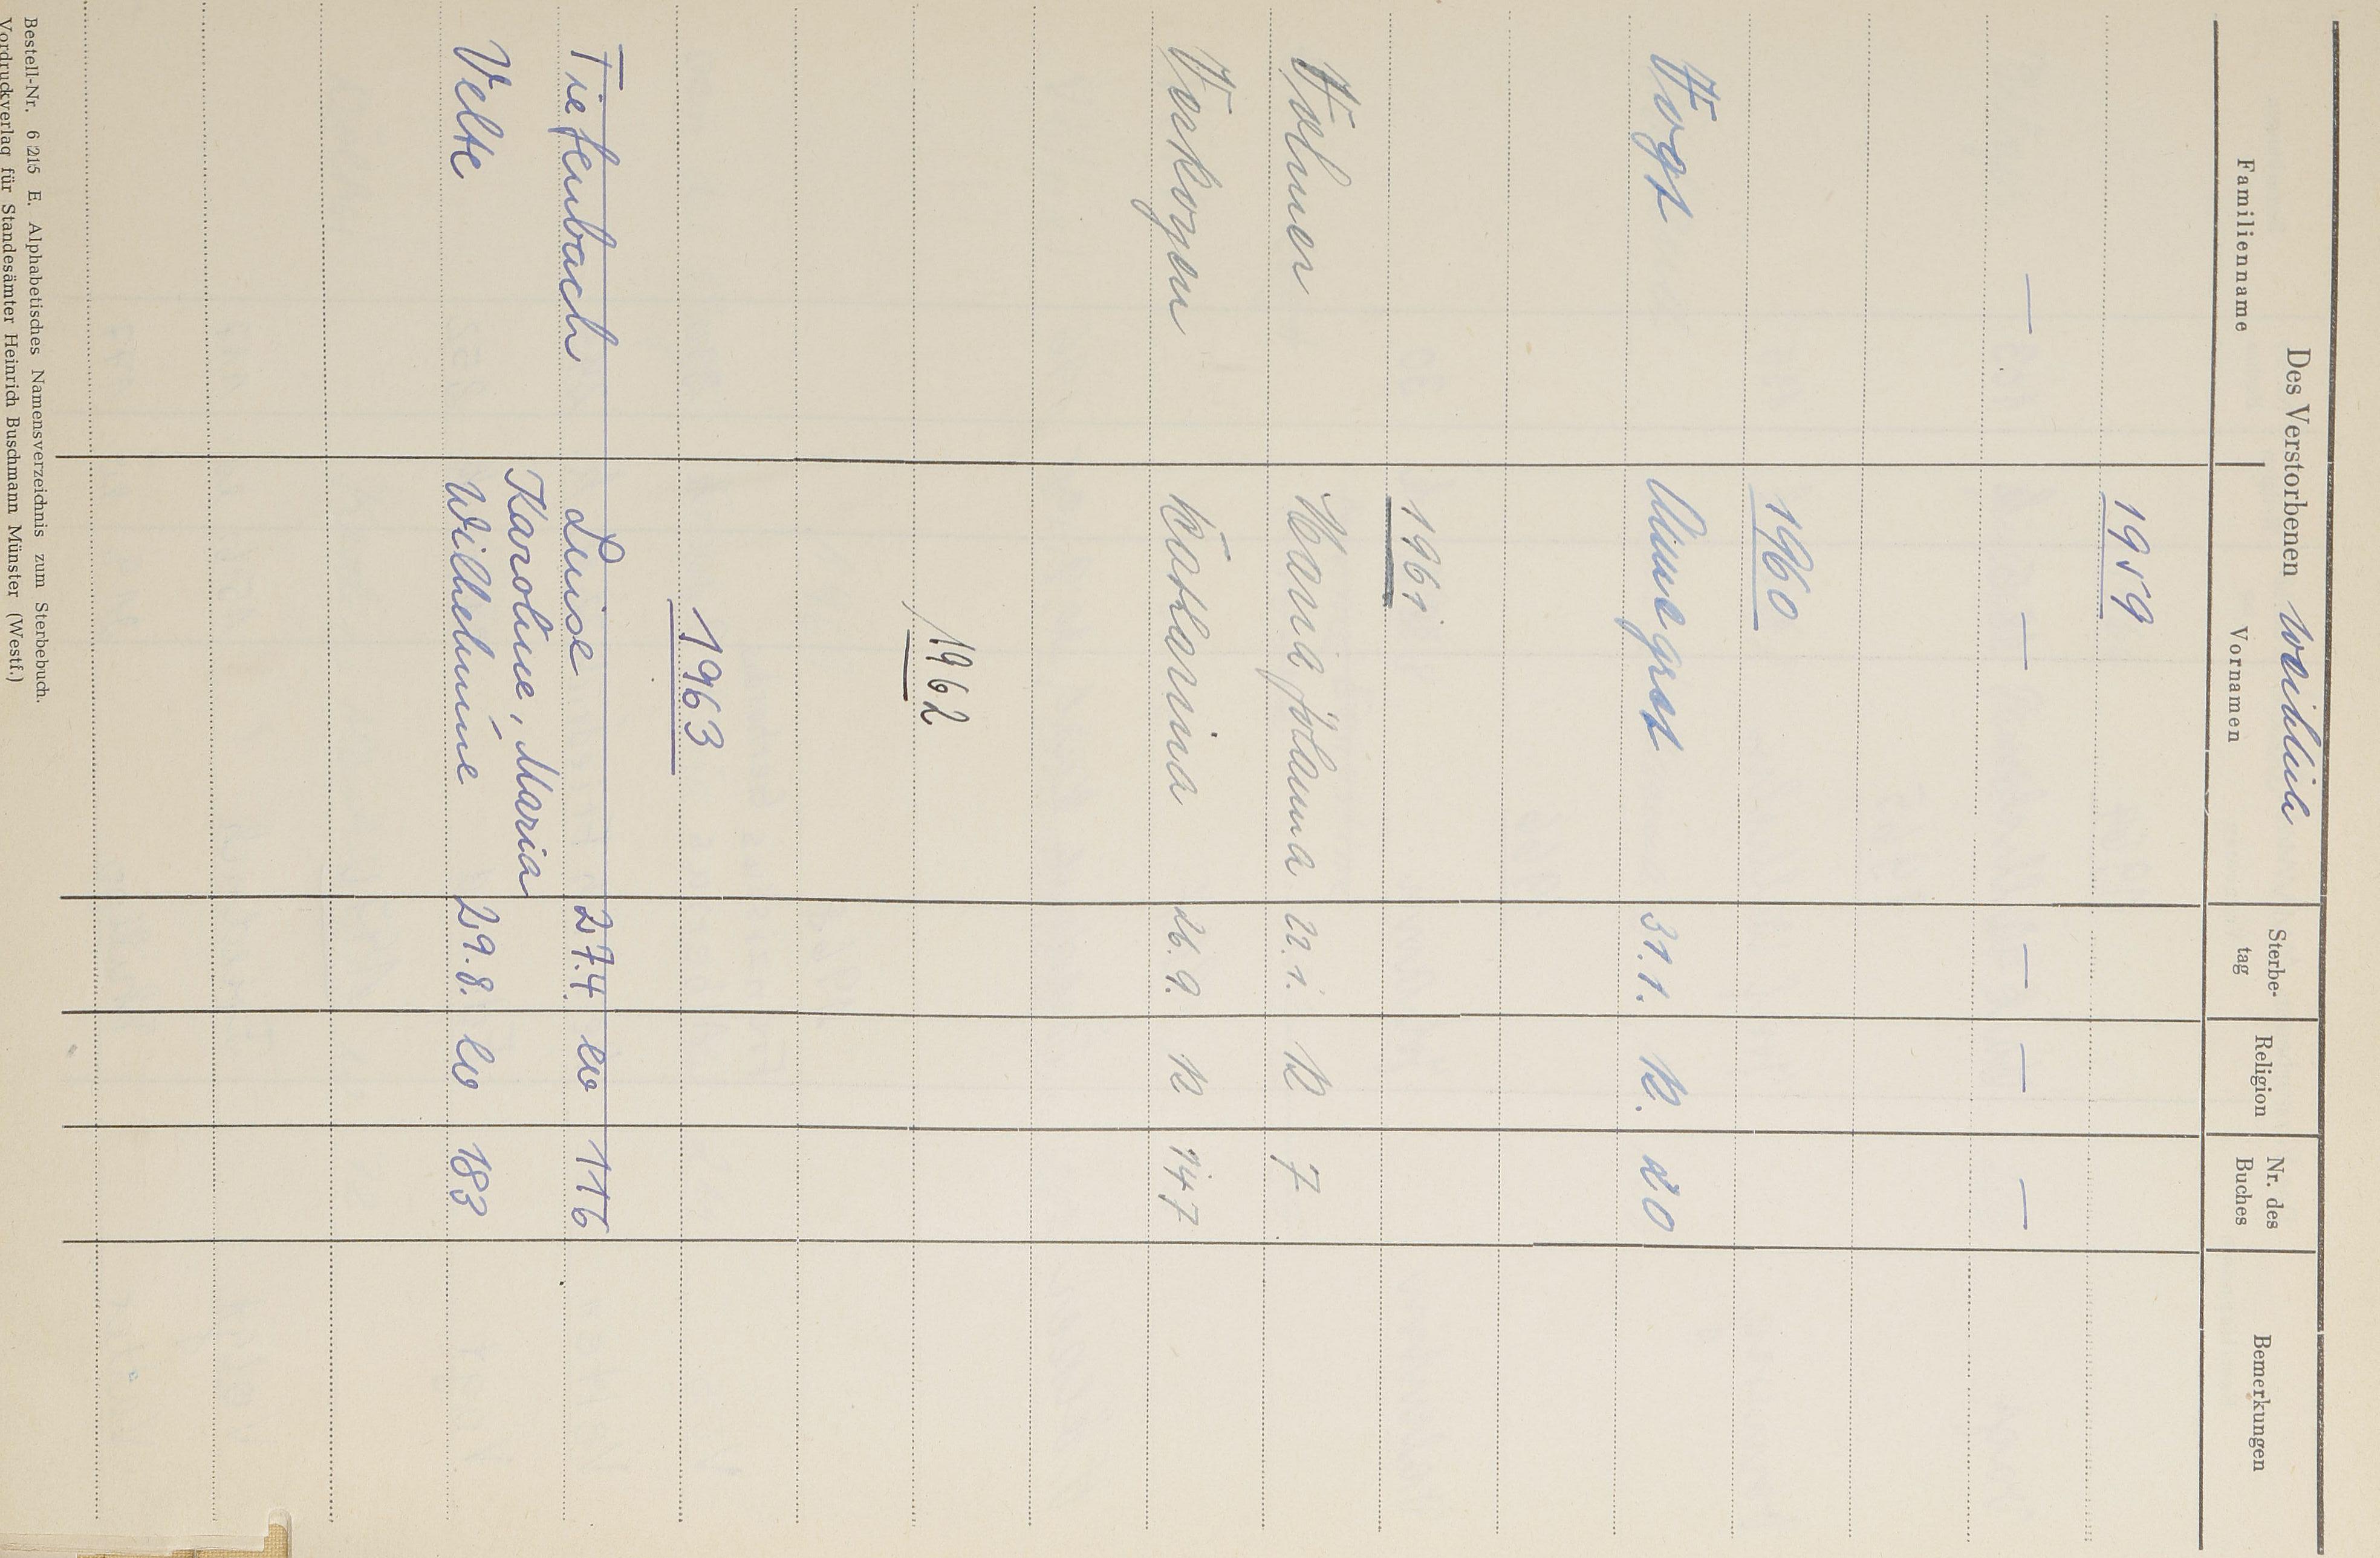 Des Verstorbenen weiblich
Familienname Vornamen Sterbe-tag Religion Nr. des Buches Bemerkungen
1959
— — — — —
1960
Vogt Annegret 31.1. K. 20
1961
Maria Johanna 22.1. K 7
Katharina 26.9. K 147
1962
1963
Tiefenbach Luise 27.4. ev 116
Karoline, Maria
Velte Wilhelmine 29.8. ev 183
Bestell-Nr. 6 215 E. Alphabetisches Namensverzeichnis zum Sterbebuch.
Vordruckverlag für Standesämter Heinrich Buschmann Münster (Westf.)